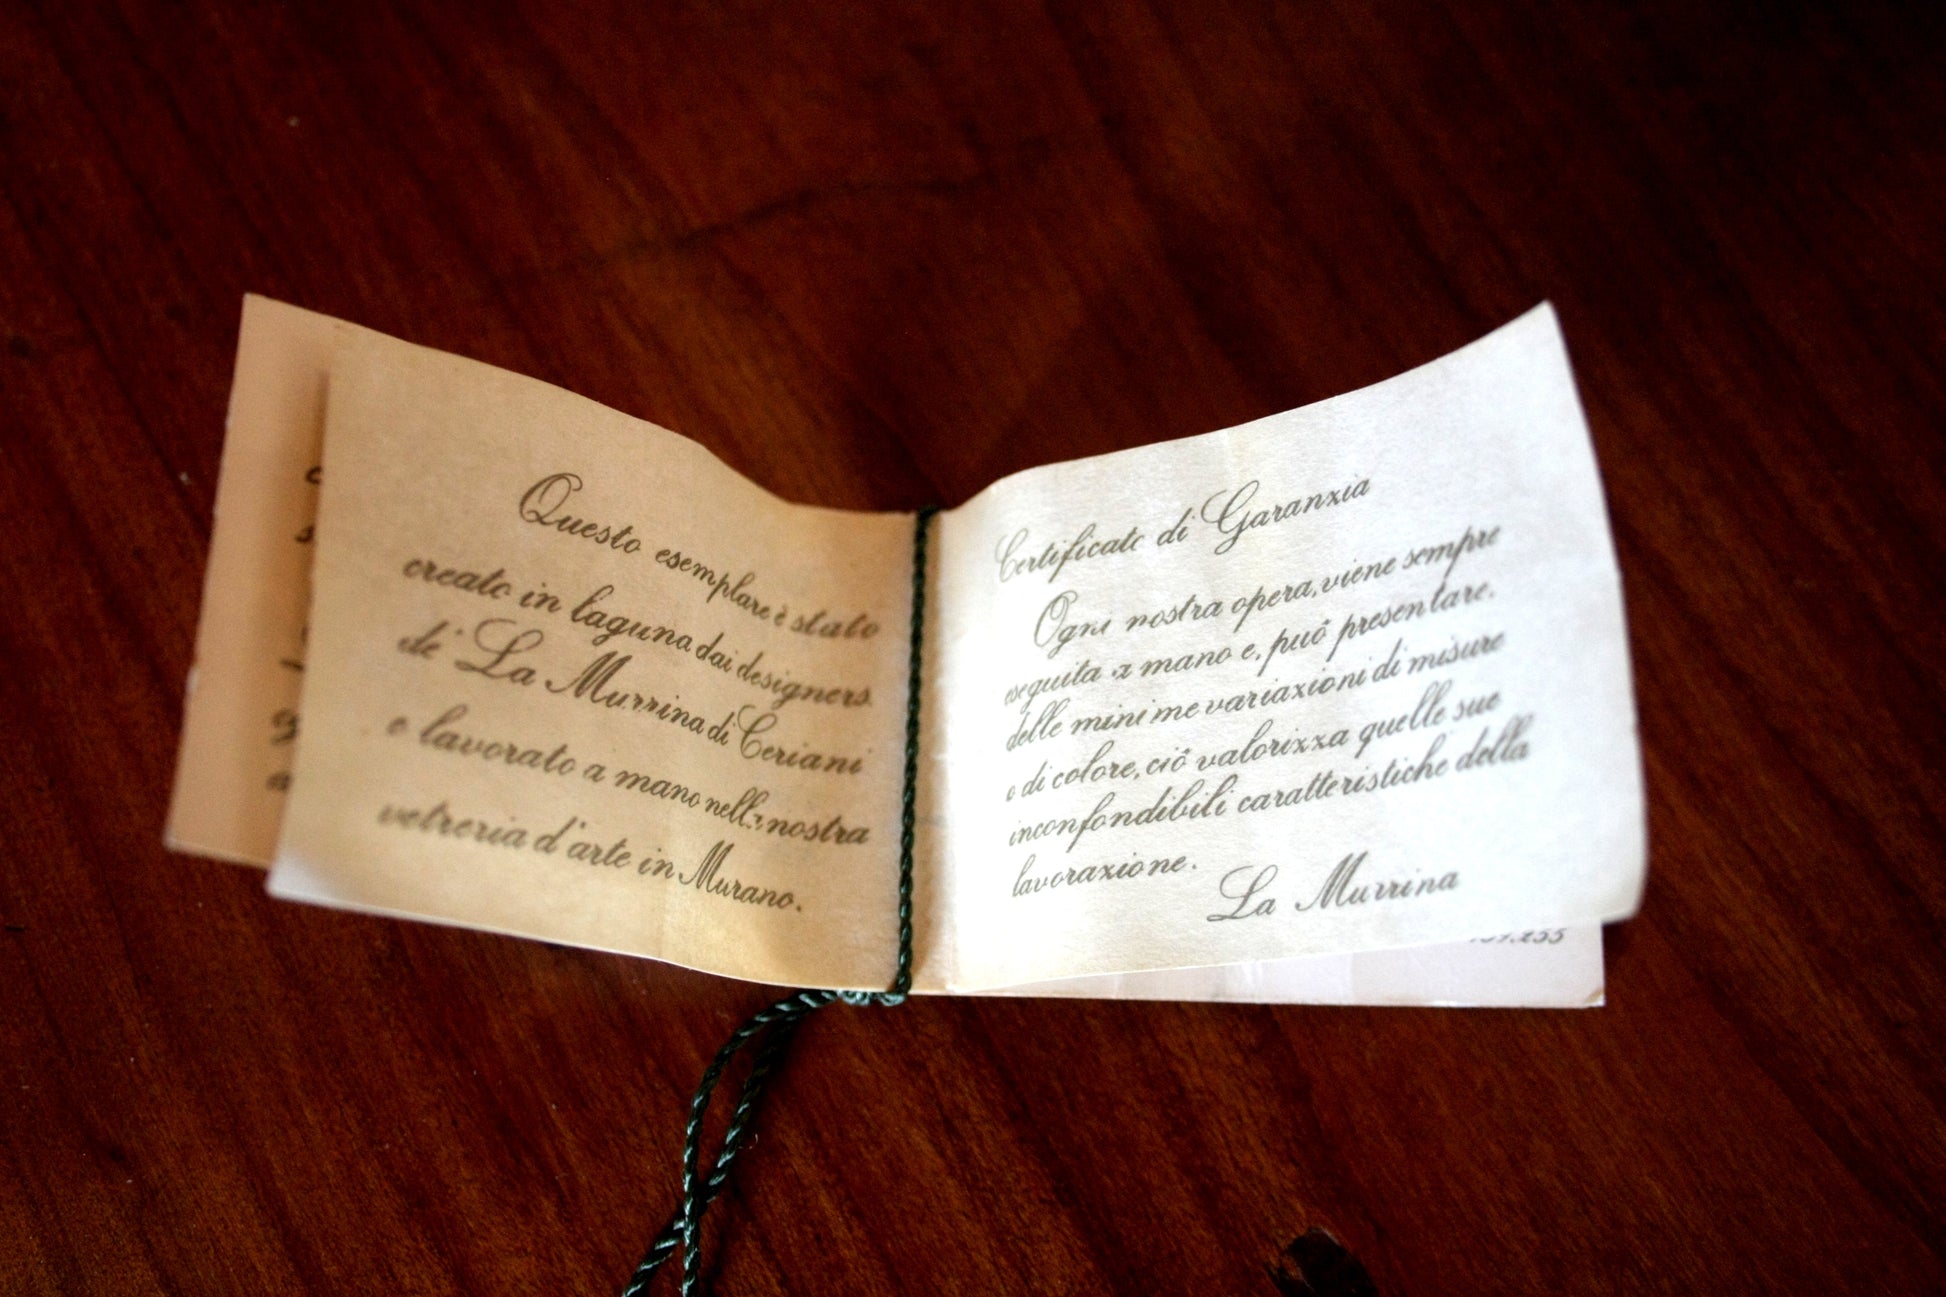 Questo esemplare è stato
creato in laguna dai designers
di La Murrina di Ceriani
e lavorato a mano nella nostra
vetreria d'arte in Murano.
Certificato di Garanzia
Ogni nostra opera, viene sempre
eseguita a mano e, può presentare.
delle minime variazioni di misure
o di colore, ciò valorizza quelle sue
inconfondibili caratteristiche della
lavorazione.
La Murrina